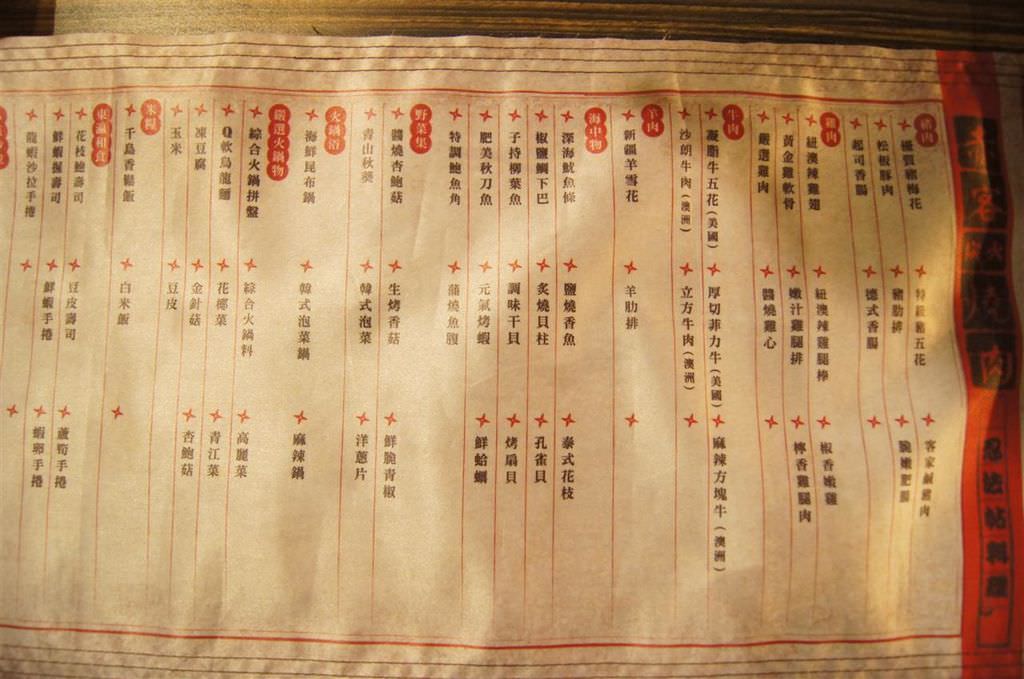 客
火
燒
肉
忍法帖料理
豬肉
優質豬梅花
特級豬五花
客家鹹豬肉
松板豚肉
豬肋排
脆嫩肥腸
起司香腸
德式香腸
雞肉
紐澳辣雞翅
紐澳辣雞腿棒
椒香嫩雞
黃金雞軟骨
嫩汁雞腿排
檸香雞腿肉
嚴選雞肉
醬燒雞心
牛肉
凝脂牛五花(美國)
厚切菲力牛(美國)
麻辣方塊牛(澳洲)
沙朗牛肉(澳洲)
立方牛肉(澳洲)
羊肉
新疆羊雪花
羊肋排
海中物
深海魷魚條
鹽燒香魚
泰式花枝
椒鹽鯛下巴
炙燒貝柱
孔雀貝
子持柳葉魚
調味干貝
烤扇貝
肥美秋刀魚
元氣烤蝦
鮮蛤蠣
特調鮑魚角
蒲燒魚腹
野菜集
醬燒杏鮑菇
生烤香菇
鮮脆青椒
青山秋葵
韓式泡菜
洋蔥片
火鍋浴
海鮮昆布鍋
韓式泡菜鍋
麻辣鍋
嚴選火鍋物
綜合火鍋拼盤
綜合火鍋料
高麗菜
Q軟烏龍麵
花椰菜
青江菜
凍豆腐
金針菇
杏鮑菇
玉米
豆皮
米糧
千島香鬆飯
白米飯
東瀛和食
花枝鮑壽司
豆皮壽司
蘆筍手捲
鮮蝦握壽司
鮮蝦手捲
蝦卵手捲
龍蝦沙拉手捲